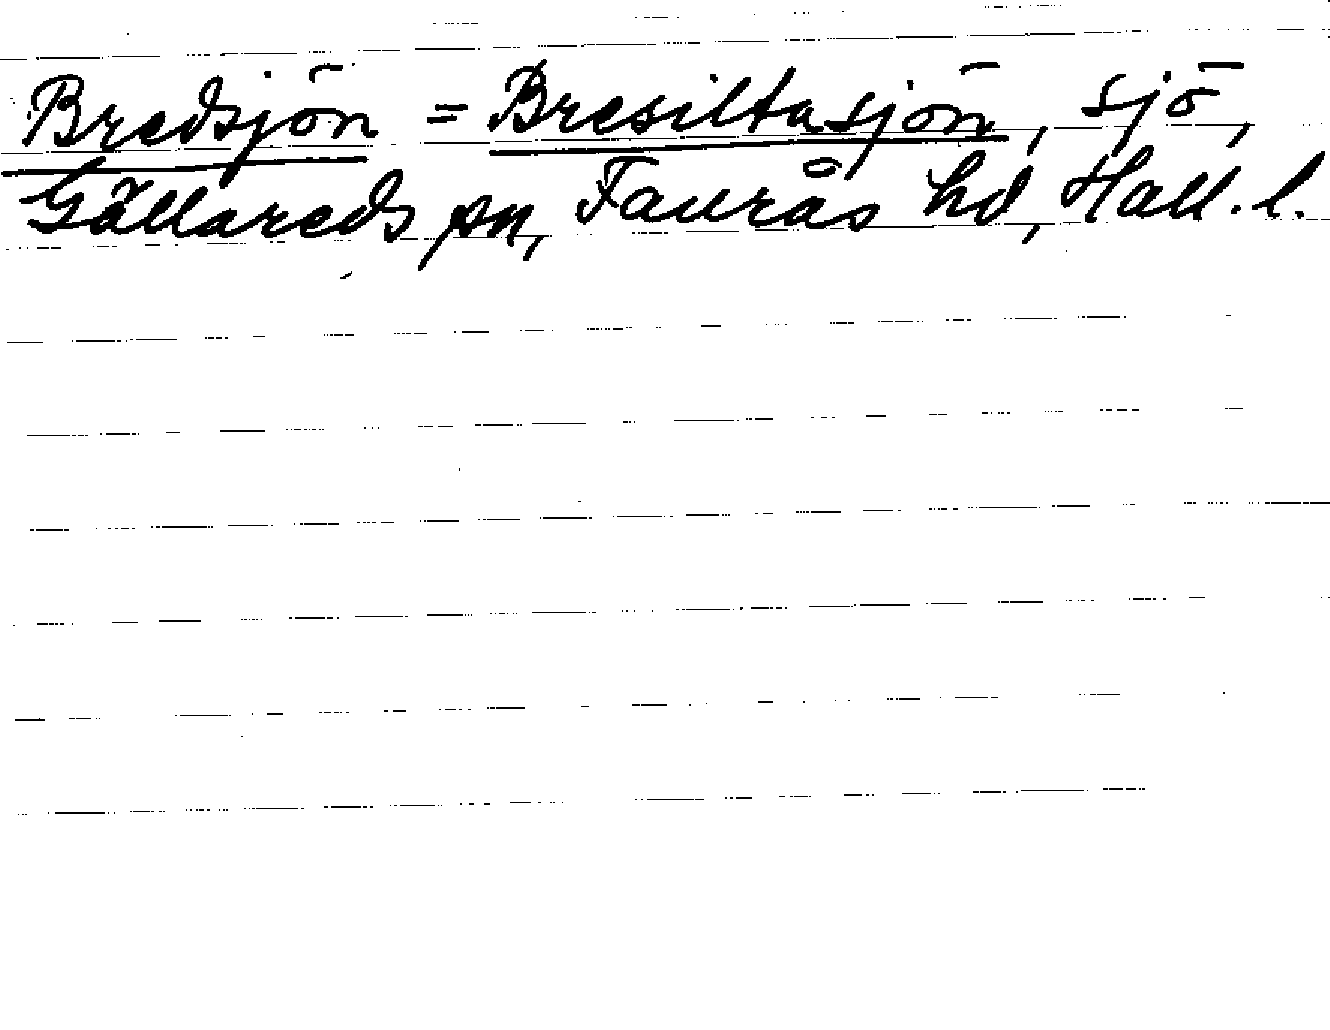 Bredsjön = Bresiltasjön, sjö,
Gällareds sn, Faurås hd, Hall. l.